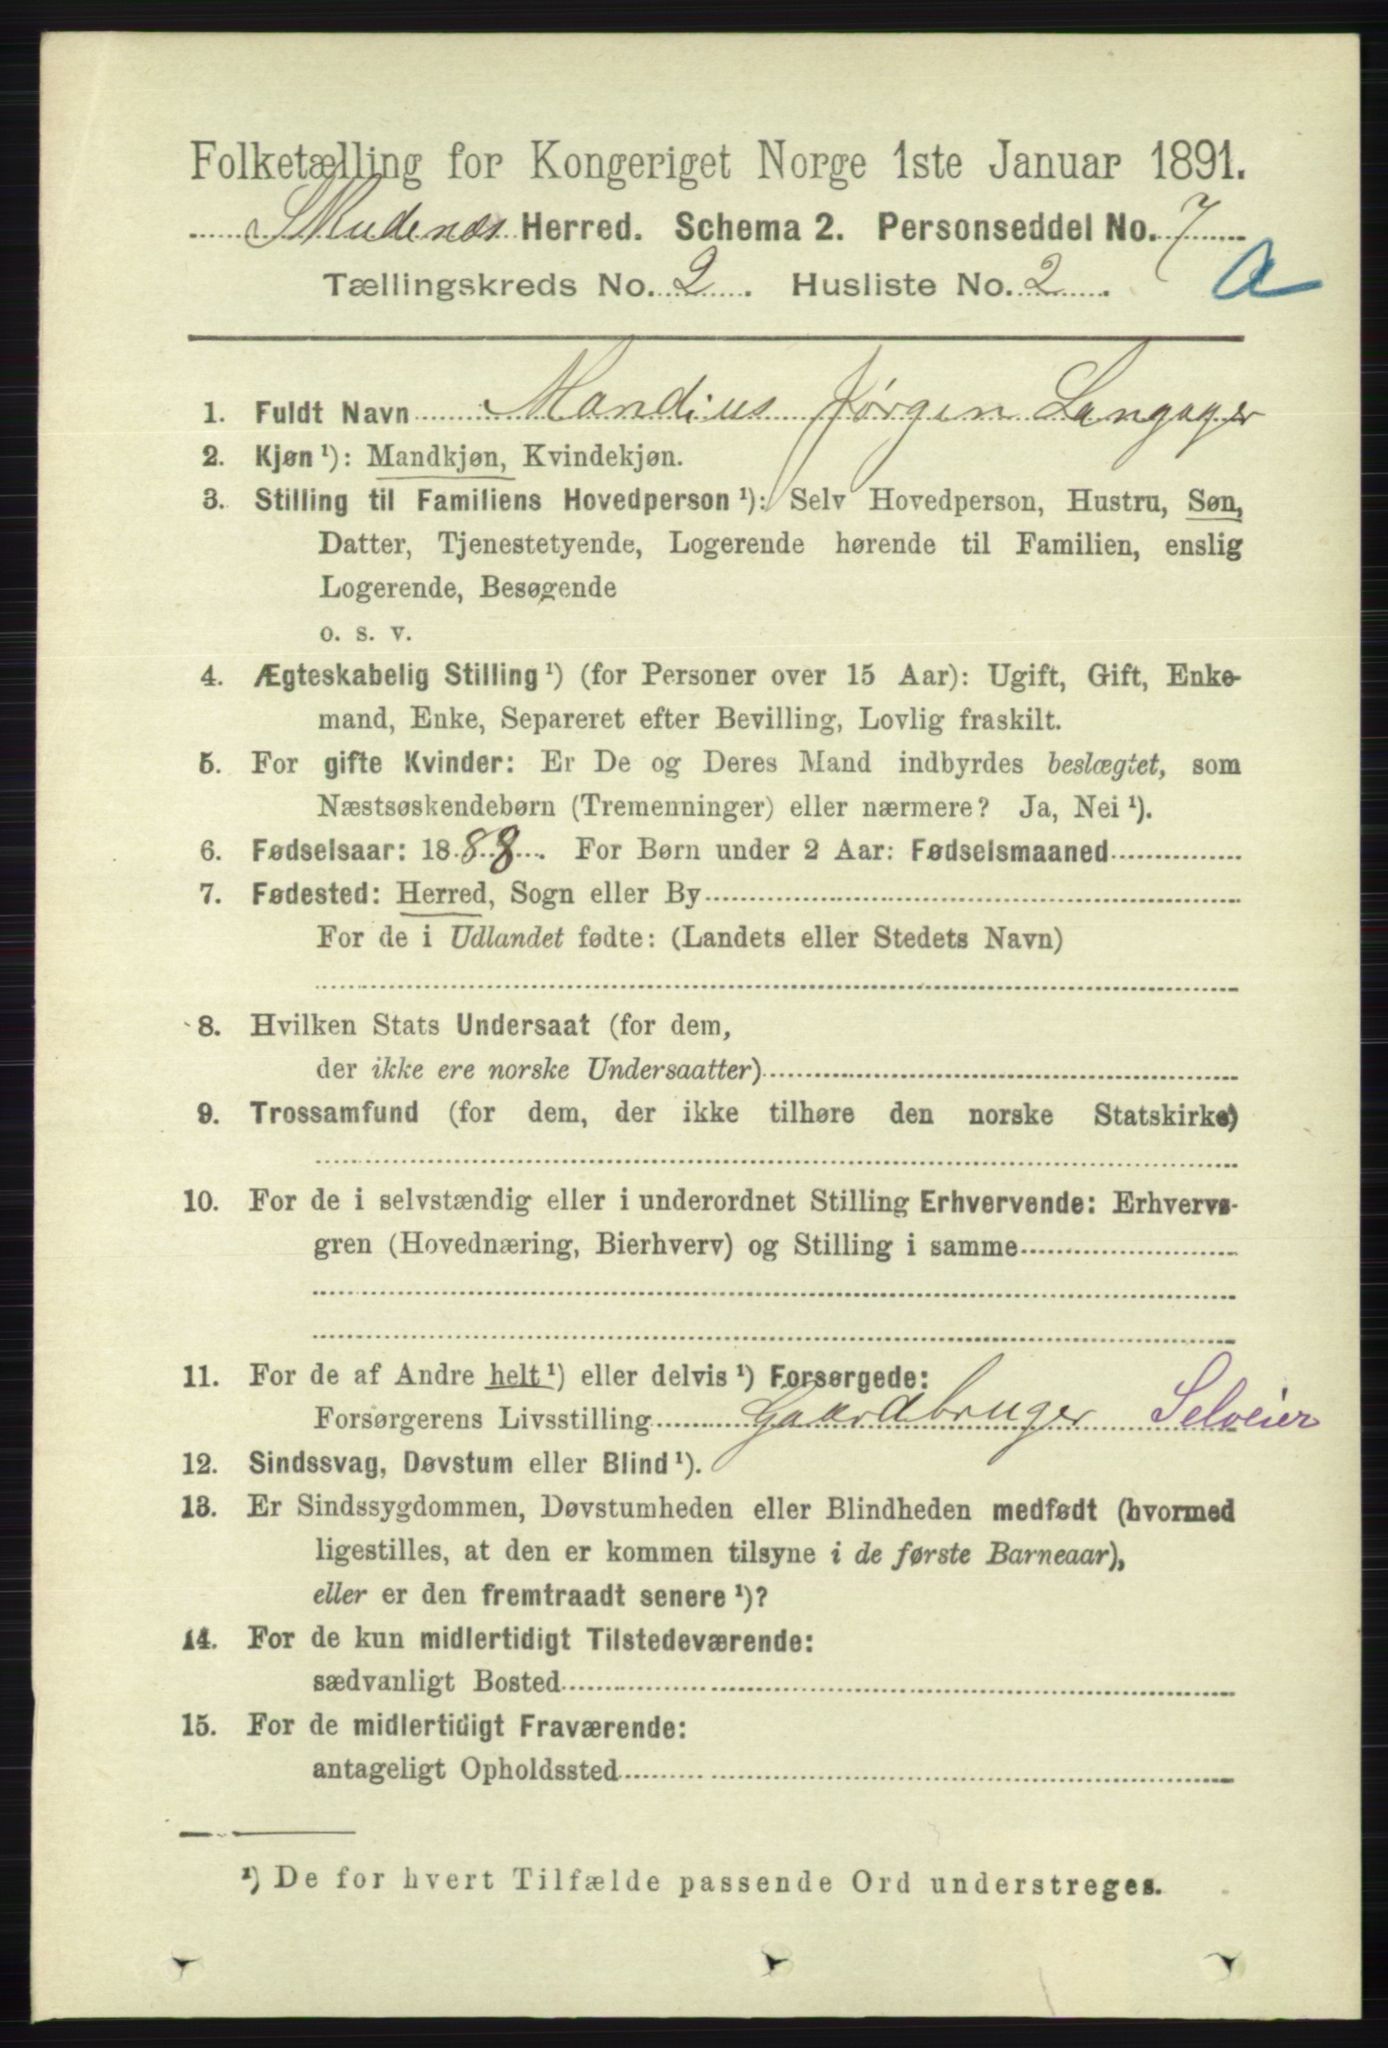 Folketælling for Kongeriget Norge 1ste Januar 1891.
Skudenes Herred. Schema 2. Personseddel No. 7
Tællingskreds No. 2. Husliste No. 2. a
1. Fuldt Navn Mandius Jørgen Langager
2. Kjøn ¹): Mandkjøn, Kvindekjøn.
3. Stilling til Familiens Hovedperson ¹): Selv Hovedperson, Hustru, Søn,
Datter, Tjenestetyende, Logerende hørende til Familien, enslig
Logerende, Besøgende
o. s. v.
4. Ægteskabelig Stilling ¹) (for Personer over 15 Aar): Ugift, Gift, Enke-
mand, Enke, Separeret efter Bevilling, Lovlig fraskilt.
5. For gifte Kvinder: Er De og Deres Mand indbyrdes beslægtet, som
Næstsøskendebørn (Tremenninger) eller nærmere? Ja, Nei ¹).
6. Fødselsaar: 1888. For Børn under 2 Aar: Fødselsmaaned
7. Fødested: Herred, Sogn eller By
For de i Udlandet fødte: (Landets eller Stedets Navn)
8. Hvilken Stats Undersaat (for dem,
der ikke ere norske Undersaatter)
9. Trossamfund (for dem, der ikke tilhøre den norske Statskirke)
10. For de i selvstændig eller i underordnet Stilling Erhvervende: Erhvervs-
gren (Hovednæring, Bierhverv) og Stilling i samme
11. For de af Andre helt ¹) eller delvis ¹) Forsørgede:
Forsørgerens Livsstilling Gaardbruger Selveier
12. Sindssvag, Døvstum eller Blind ¹).
13. Er Sindssygdommen, Døvstumheden eller Blindheden medfødt (hvormed
ligestilles, at den er kommen tilsyne i de første Barneaar),
eller er den fremtraadt senere ¹)?
14. For de kun midlertidigt Tilstedeværende:
sædvanligt Bosted
15. For de midlertidigt Fraværende:
antageligt Opholdssted
¹) De for hvert Tilfælde passende Ord understreges.